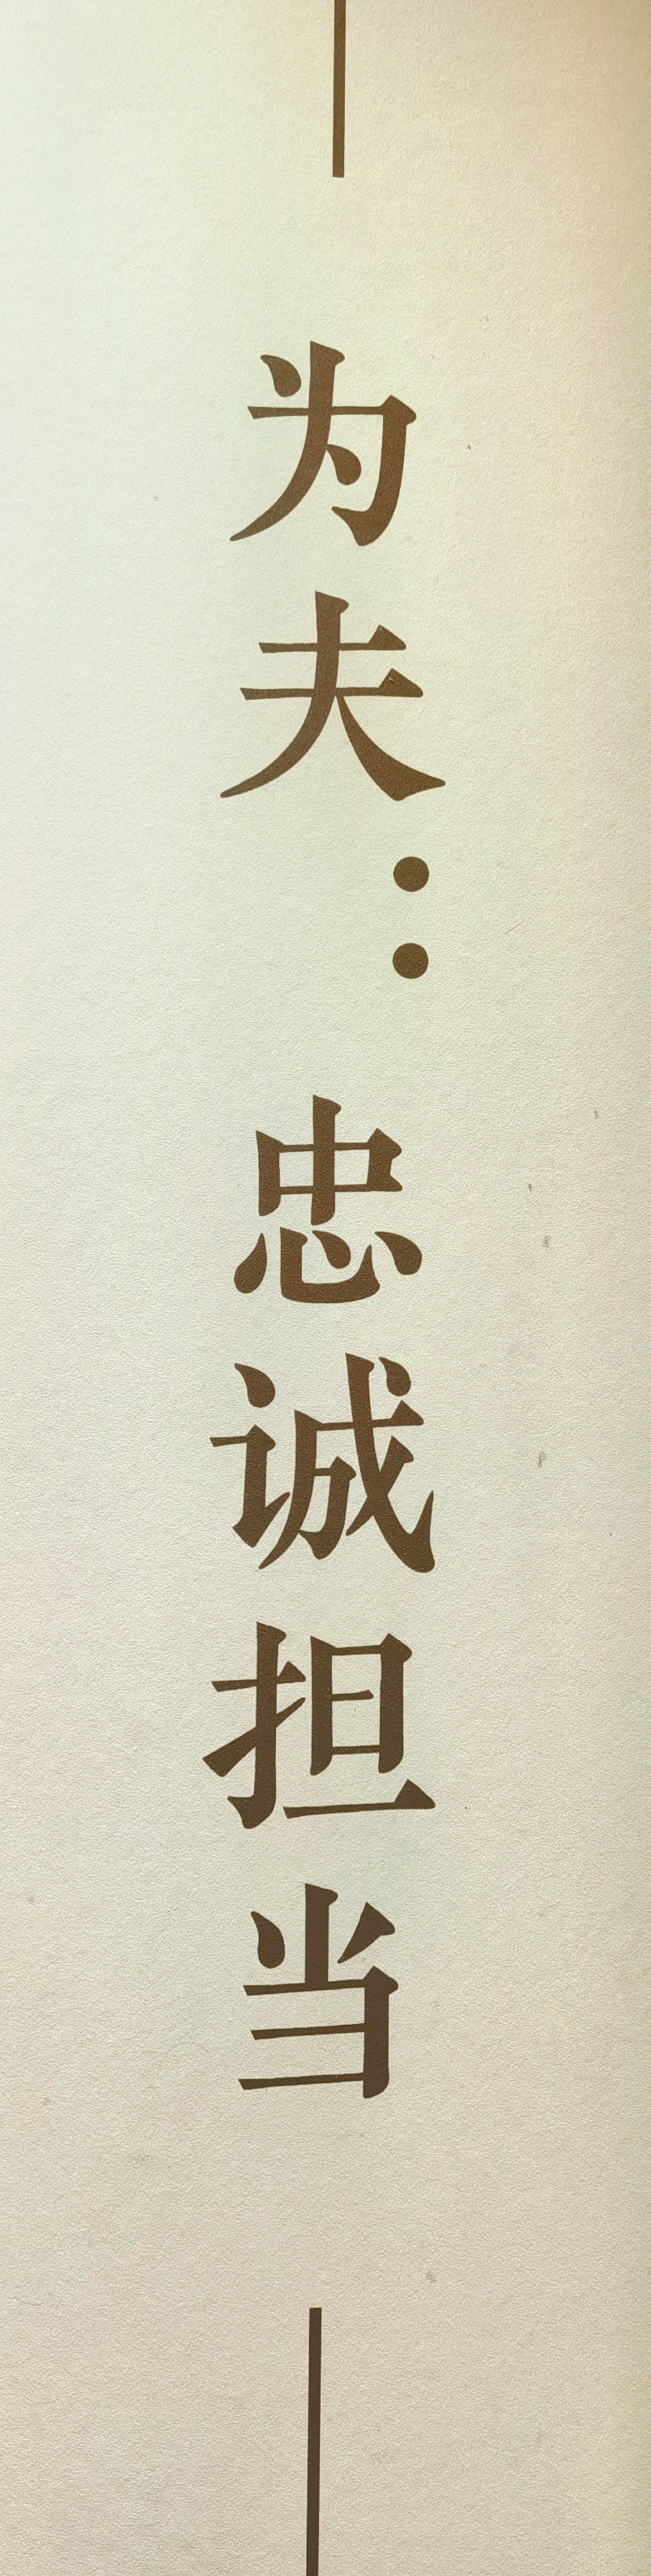 为夫：忠诚担当